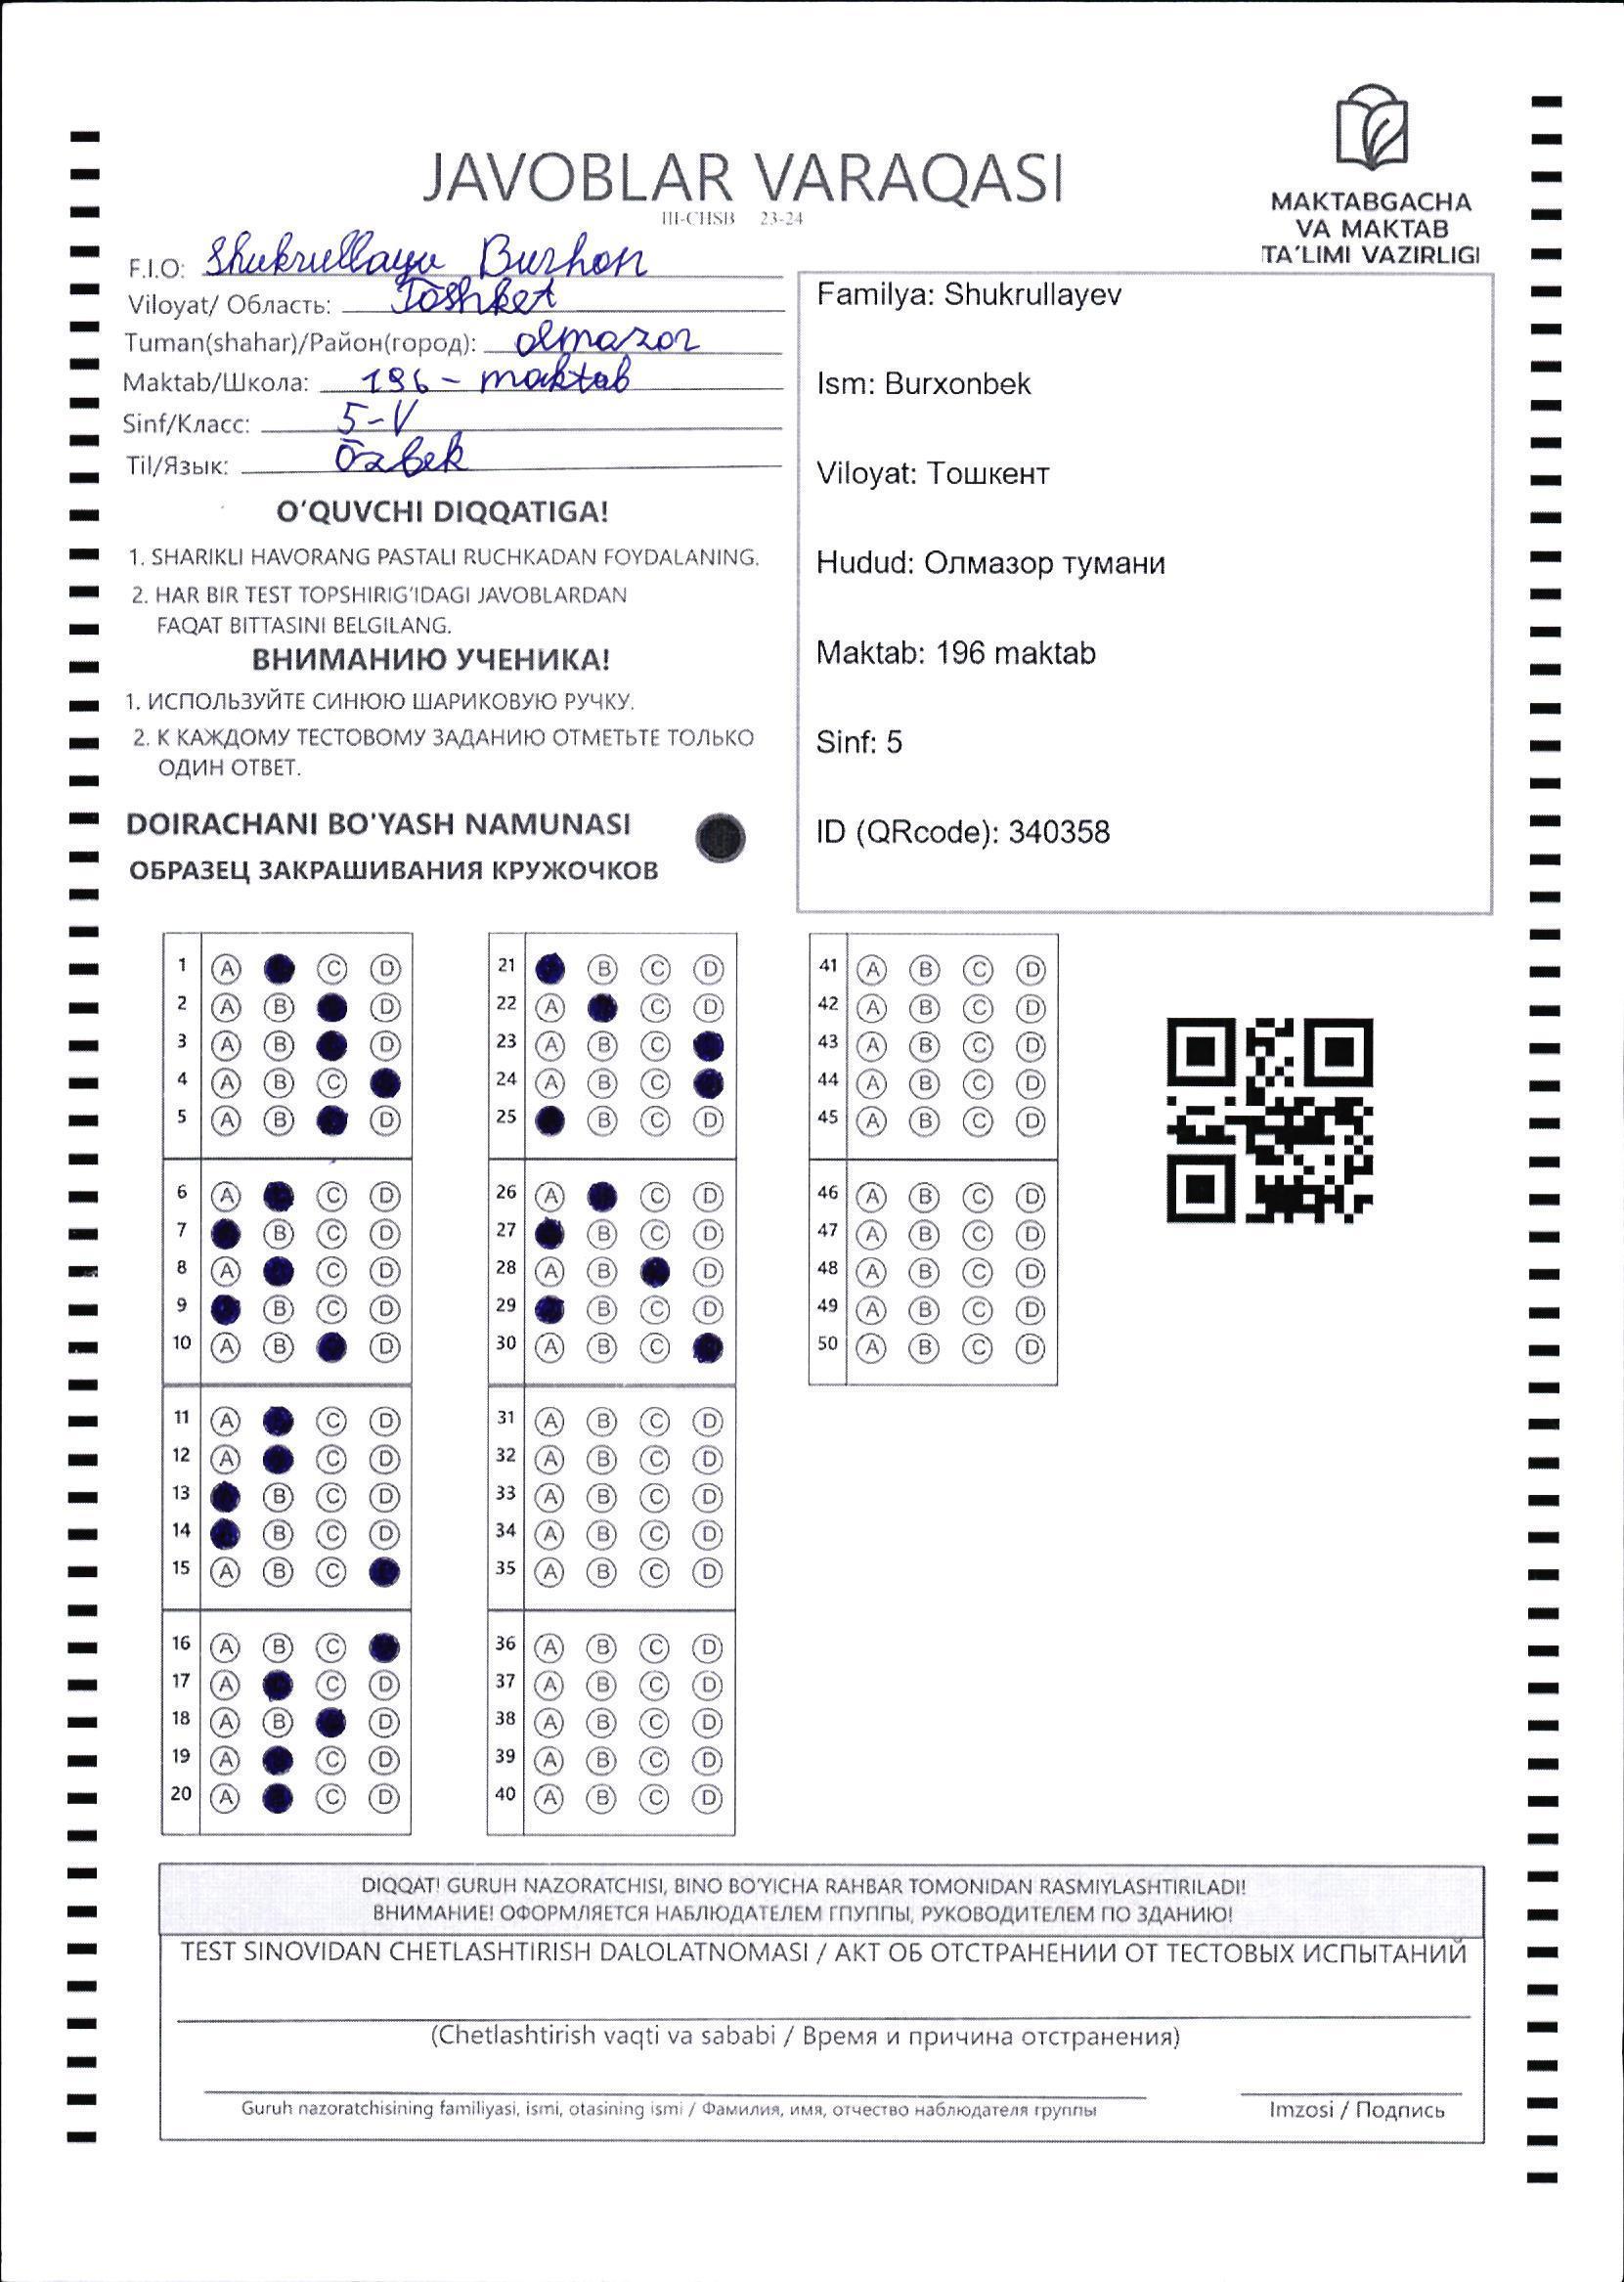 JAVOBLAR VARAQASI
III-CHSB 23-24
MAKTABGACHA
VA MAKTAB
TA'LIMI VAZIRLIGI
F.I.O: Shukrullayev Burhon
Viloyat/ Область: Toshket
Tuman(shahar)/Район(город): olmazor
Maktab/Школа: 196 - maktab
Sinf/Класс: 5-V
Til/Язык: Ozbek
O'QUVCHI DIQQATIGA!
1. SHARIKLI HAVORANG PASTALI RUCHKADAN FOYDALANING.
2. HAR BIR TEST TOPSHIRIG'IDAGI JAVOBLARDAN
FAQAT BITTASINI BELGILANG.
ВНИМАНИЮ УЧЕНИКА!
1. ИСПОЛЬЗУЙТЕ СИНЮЮ ШАРИКОВУЮ РУЧКУ.
2. К КАЖДОМУ ТЕСТОВОМУ ЗАДАНИЮ ОТМЕТЬТЕ ТОЛЬКО
ОДИН ОТВЕТ.
DOIRACHANI BO'YASH NAMUNASI
ОБРАЗЕЦ ЗАКРАШИВАНИЯ КРУЖОЧКОВ
Familya: Shukrullayev
Ism: Burxonbek
Viloyat: Тошкент
Hudud: Олмазор тумани
Maktab: 196 maktab
Sinf: 5
ID (QRcode): 340358
1 A C D
2 A B D
3 A B D
4 A B C
5 A B D
6 A C D
7 B C D
8 A C D
9 B C D
10 A B D
11 A C D
12 A C D
13 B C D
14 B C D
15 A B C
16 A B C
17 A C D
18 A B D
19 A C D
20 A C D
21 B C D
22 A C D
23 A B C
24 A B C
25 B C D
26 A C D
27 B C D
28 A B D
29 B C D
30 A B C
31 A B C D
32 A B C D
33 A B C D
34 A B C D
35 A B C D
36 A B C D
37 A B C D
38 A B C D
39 A B C D
40 A B C D
41 A B C D
42 A B C D
43 A B C D
44 A B C D
45 A B C D
46 A B C D
47 A B C D
48 A B C D
49 A B C D
50 A B C D
DIQQAT! GURUH NAZORATCHISI, BINO BO'YICHA RAHBAR TOMONIDAN RASMIYLASHTIRILADI!
ВНИМАНИЕ! ОФОРМЛЯЕТСЯ НАБЛЮДАТЕЛЕМ ГПУППЫ, РУКОВОДИТЕЛЕМ ПО ЗДАНИЮ!
TEST SINOVIDAN CHETLASHTIRISH DALOLATNOMASI / АКТ ОБ ОТСТРАНЕНИИ ОТ ТЕСТОВЫХ ИСПЫТАНИЙ
(Chetlashtirish vaqti va sababi / Время и причина отстранения)
Guruh nazoratchisining familiyasi, ismi, otasining ismi / Фамилия, имя, отчество наблюдателя группы
Imzosi / Подпись